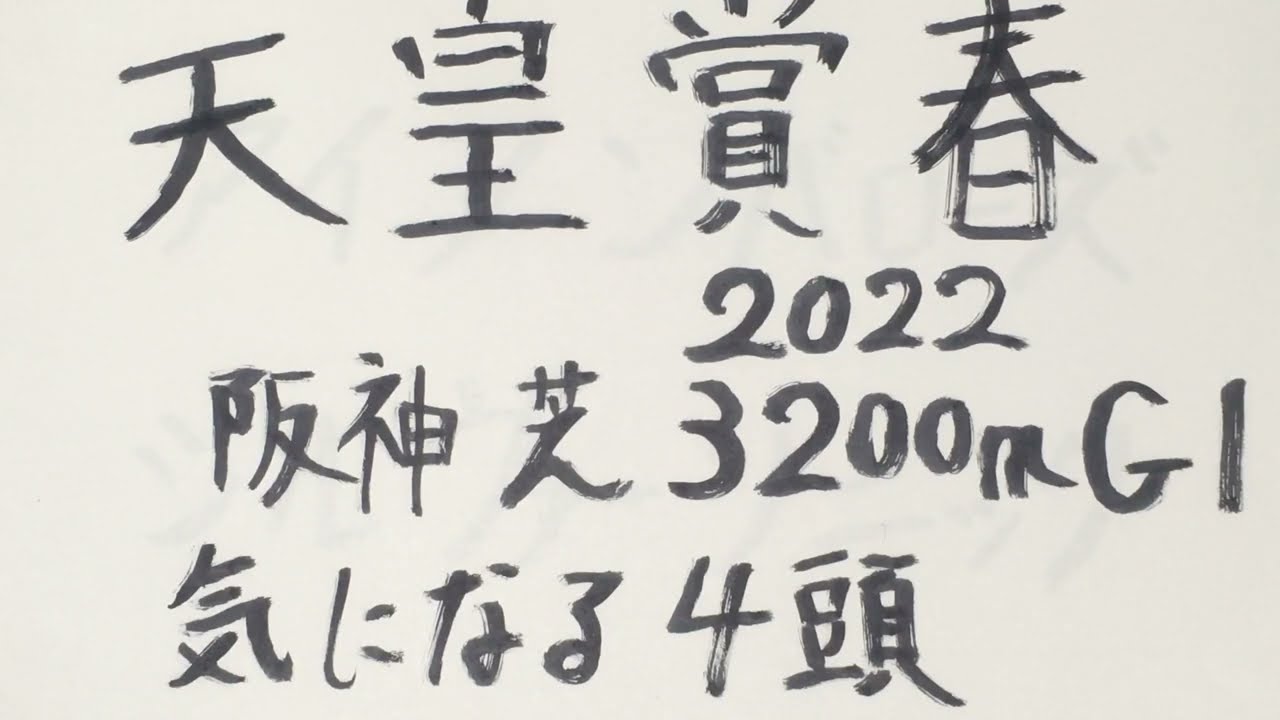 天皇賞春
2022
阪神 芝 3200m G1
気になる4頭